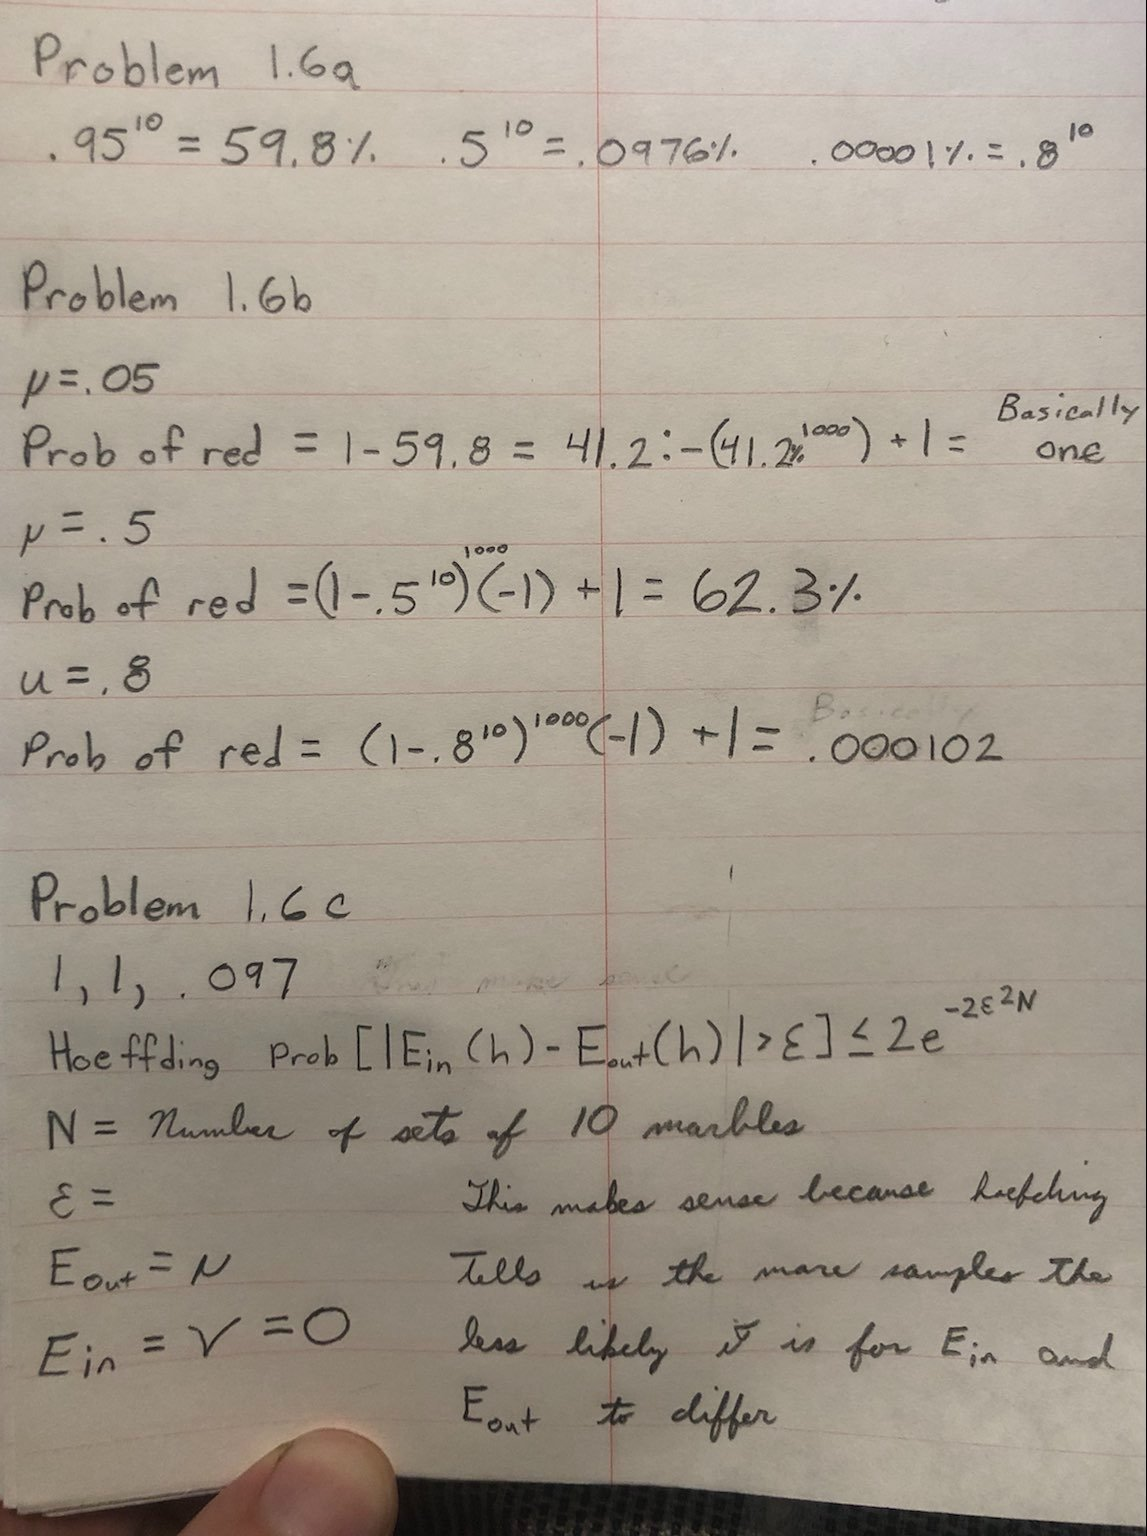 Problem 1.6a
.95¹⁰ = 59.8% .5¹⁰ = .0976% .00001% = .8¹⁰
Problem 1.6b
μ = .05
Prob of red = 1 - 59.8 = 41.2 : -(41.2%¹⁰⁰⁰) + 1 = Basically one
μ = .5
Prob of red = (1-.5¹⁰)¹⁰⁰⁰(-1) + 1 = 62.3%
u = .8
Prob of red = (1-.8¹⁰)¹⁰⁰⁰(-1) + 1 = .000102
Problem 1.6c
1, 1, .097
Hoeffding Prob[|Ein(h) - Eout(h)| > ε] ≤ 2e^-2ε²N
N = Number of sets of 10 marbles
ε =
This makes sense because hoefding
Eout = μ
Tells us the more samples the
Ein = ν = 0
less likely it is for Ein and
Eout to differ